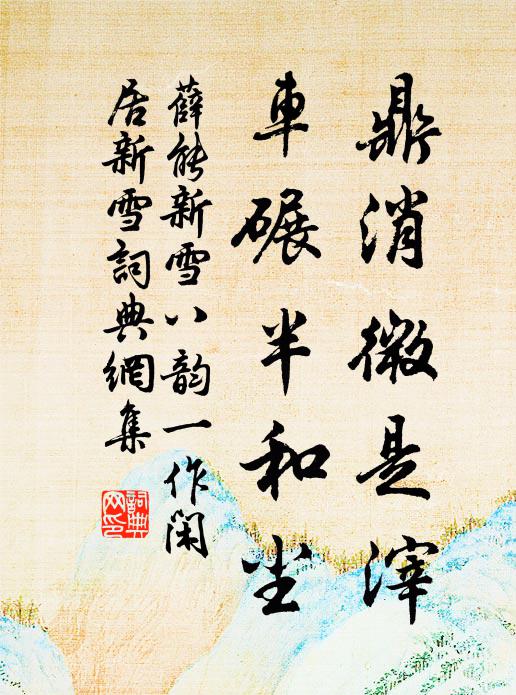 鼎消微是滓
車碾半和尘
薛能新雪八韵一作閑
居新雪詞典網集
詞典网印